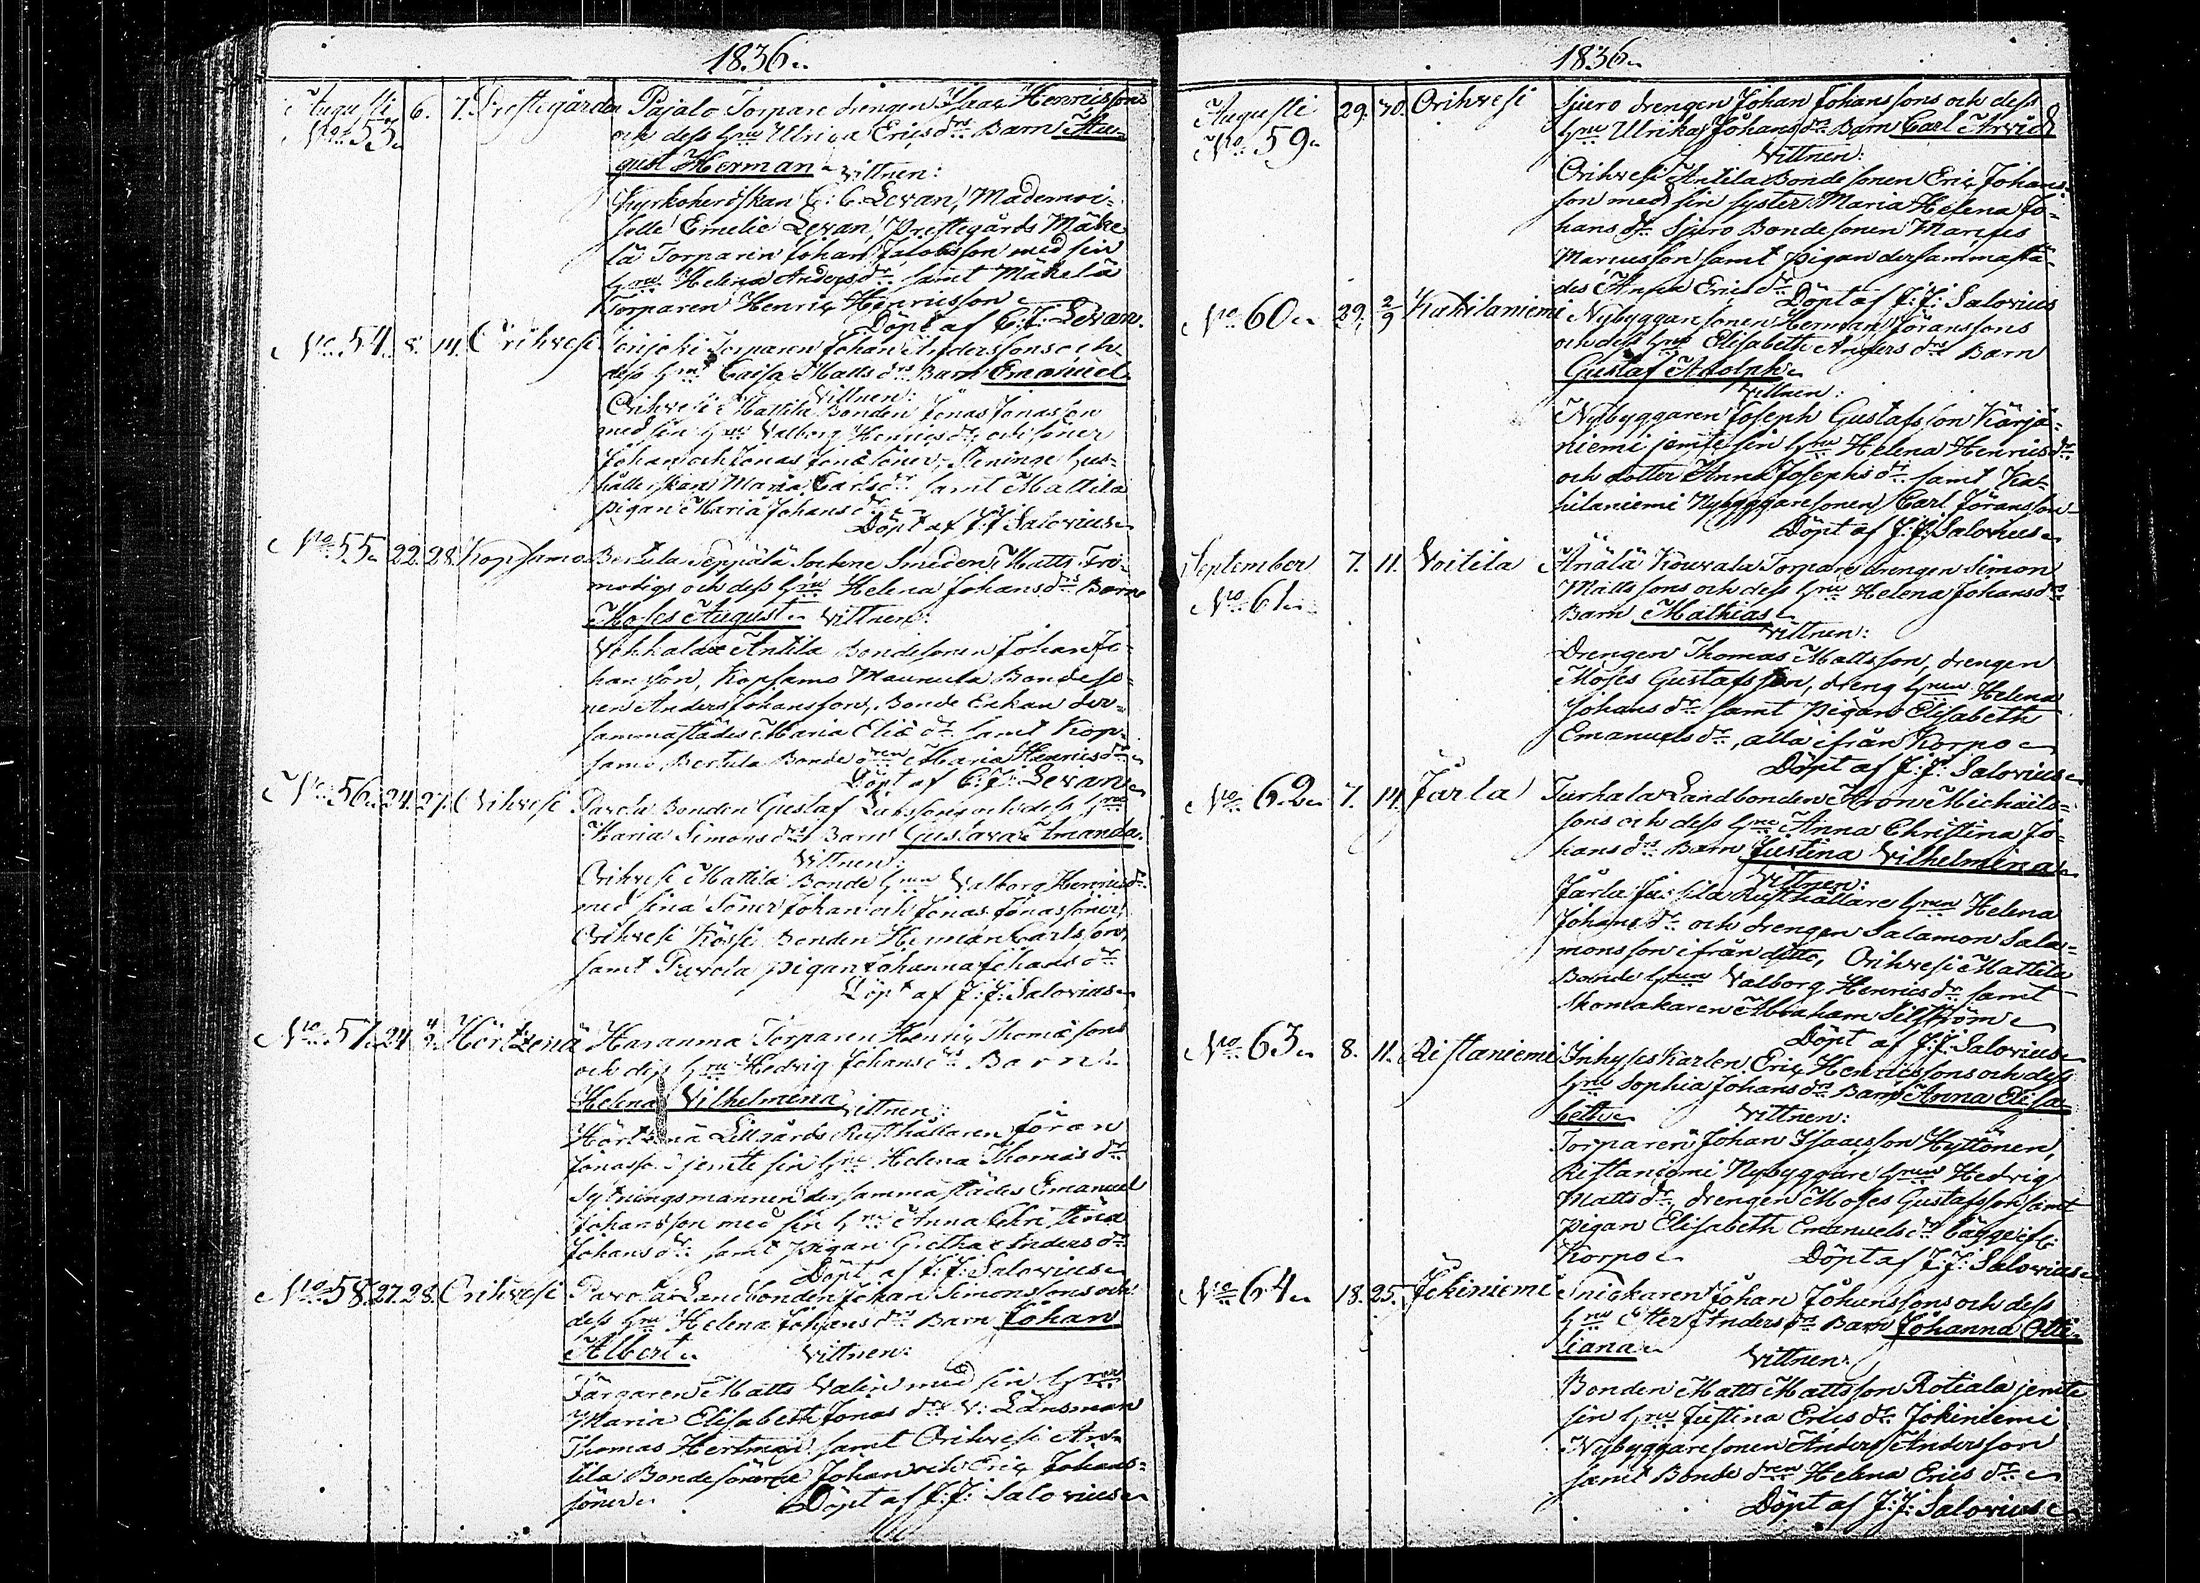 1836.
Augusti 6. 7. Prestegården Pajalo Torpare drengen Isaac Henricssons
No 53. och dess Hru Ulrica Ericsdrs Barn Au-
gust Herman Vittnen:
Kyrkoherdskan C. C. Levan, Mademoi-
selle Emelie Levan, Prestegårds Mäke
lä Torparen Johan Jacobsson med sin
Hru Helena Andersdr samt Mäkelä
Torparen Henric Henricsson
Döpt af C: J: Levan.
No 54. 8. 14. Orihvesi Torparen Johan Anderssons och
dess Hrus Caisa Mattsdrs Barn Emanuel
Vittnen:
Orihvesi Mattila Bonden Jonas Jonasson
med sin Hru Valborg Henricsdr och söner
Johan och Jonas Jonæsöner, Hus-
hållerskan Maria Carlsdr samt Mattila
pigan Maria Johansdr
Döpt af J: J: Salovius
No 55. 22. 28. Kopsamo Bertula Seppälä Sockne Smeden Matts Fri-
modigs och dess Hru Helena Johansdrs Barn
Moses August Vittnen:
Vehkalax Antila Bondesonen Johan Jo-
hansson, Kopsamo Maunula Bondeso-
nen Anders Johansson, Bonde Enkan der-
sammastädes Maria Eliædr samt Kop-
samo Bertula Bonde dren Maria Henricsdr
Döpt af C: J: Levan
No 56. 24. 27. Orihvesi Pavola Bonden Gustaf och dess Hru
Maria Simonsdrs Barn Gustava Amanda.
Vittnen:
Orihvesi Mattila Bonde Hrun Valborg Henricsdr
med sina Söner Johan och Jonas Jonassöner,
Orihvesi Kössi Bonden Herman Carlsson,
samt Pavola pigan Johanna Johansdr
Döpt af J: J: Salovius
No 57. 24. 4/9 Hörtzenä Haranma Torparen Henric Thomæsons
och dess Hru Hedvig Johansdrs Barn
Helena Vilhelmina Vittnen:
Hörtzenä Lillgårds Rusthållaren Jöran
Jonasson jemte sin Hru Helena Thomasdr
Sytningsmannen dersammastädes Emanuel
Johansson med sin Hru Anna Christina
Johansdr samt pigan Gretha Andersdr
Döpt af J: J: Salovius
No 58. 27. 28. Orihvesi Pavola Landbonden Johan Simonssons och
dess Hru Helena Johansdrs Barn Johan
Albert Vittnen:
Färgaren Matts Valin med sin Hru
Maria Elisabeth Jonasdr V: Länsman
Thomas Hertman samt Orihvesi An-
tila Bondesönerne Johan och Eric Johans-
söner Döpt af J: J: Salovius
1836.
Augusti 29. 30. Orihvesi Sjuro drengen Johan Johanssons och dess
No 59. Hru Ulrika Johansdrs Barn Carl Arvid
Vittnen:
Orihvesi Antila Bondesonen Eric Johans-
son med sin syster Maria Helena Jo-
hansdr Sjuro Bondesonen Marcus
Marcusson samt pigan dersammastä-
des Anna Ericsdr Döpt af J: J: Salovius
No 60. 29. 2/9 Kahilaniemi Nybyggaresonen Herman Jöranssons
och dess Hru Elisabeth Andersdrs Barn
Gustaf Adolph
Vittnen:
Nybyggaren Joseph Gustafsson Karja-
niemi jemte sin Hru Helena Henricsdr
och dotter Anna Josephsdr samt Ka-
hilaniemi Nybyggaresonen Carl Jöransson
Döpt af J: J: Salovius
September 7. 11. Voitila Änälä Kouvala Torpare drengen Simon
No 61. Mattssons och dess Hru Helena Johansdrs
Barn Mathias
Vittnen:
Drengen Thomas Mattsson, drengen
Moses Gustafsson, dreng Hrun Helena
Johansdr samt pigan Elisabeth
Emanuelsdr, alla ifrån Korpo
Döpt af J: J: Salovius
No 62. 7. 14. Järla Turhala Landbonden Aron Michaels-
sons och dess Hru Anna Christina Jo-
hansdrs Barn Justina Vilhelmina
Vittnen:
Järla Jussila Rusthållare Hrun Helena
Johansdr och drengen Salamon Sala-
monsson ifrån ditto, Orihvesi Mattila
Bonde Hrun Valborg Henricsdr samt
Skomakaren Abraham Silfström
Döpt af J: J: Salovius
No 63. 8. 11. Ristaniemi Inhyses Karlen Eric Henricssons och dess
Hru Sophia Johansdrs Barn Anna Elisa-
beth Vittnen:
Torparen Johan Isaacsson Hyttönen,
Ristaniemi Nybyggare Hrun Hedvig
Mattsdr, drengen Moses Gustafsson samt
pigan Elisabeth Emanuelsdr bägge ifr:
Korpo Döpt af J: J: Salovius
No 64. 18. 25. Jokiniemi Snickaren Johan Johanssons och dess
Hru Ester Andersdrs Barn Johanna Otti-
liana Vittnen:
Bonden Matts Mattsson Rotiala jemte
sin Hru Justina Ericsdr Jokiniemi
Nybyggaresonen Anders Andersson
samt Bonde dren Helena Ericsdr
Döpt af J: J: Salovius